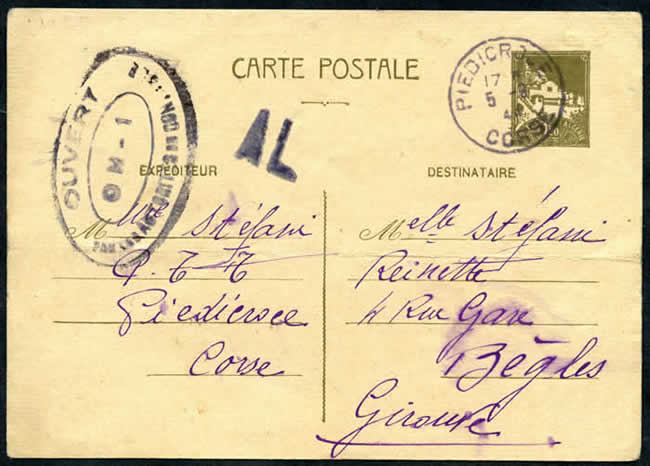 CARTE POSTALE
OUVERT
PAR LES AUTORITÉS DE CONTRÔLE
OM-1
AL
PIEDICROCE
17
5
CORSE
EXPÉDITEUR
Mme Stéfani
P.T.T
Piedicroce
Corse
DESTINATAIRE
Melle Stéfani
Reinette
4 Rue Gare
Bègles
Gironde